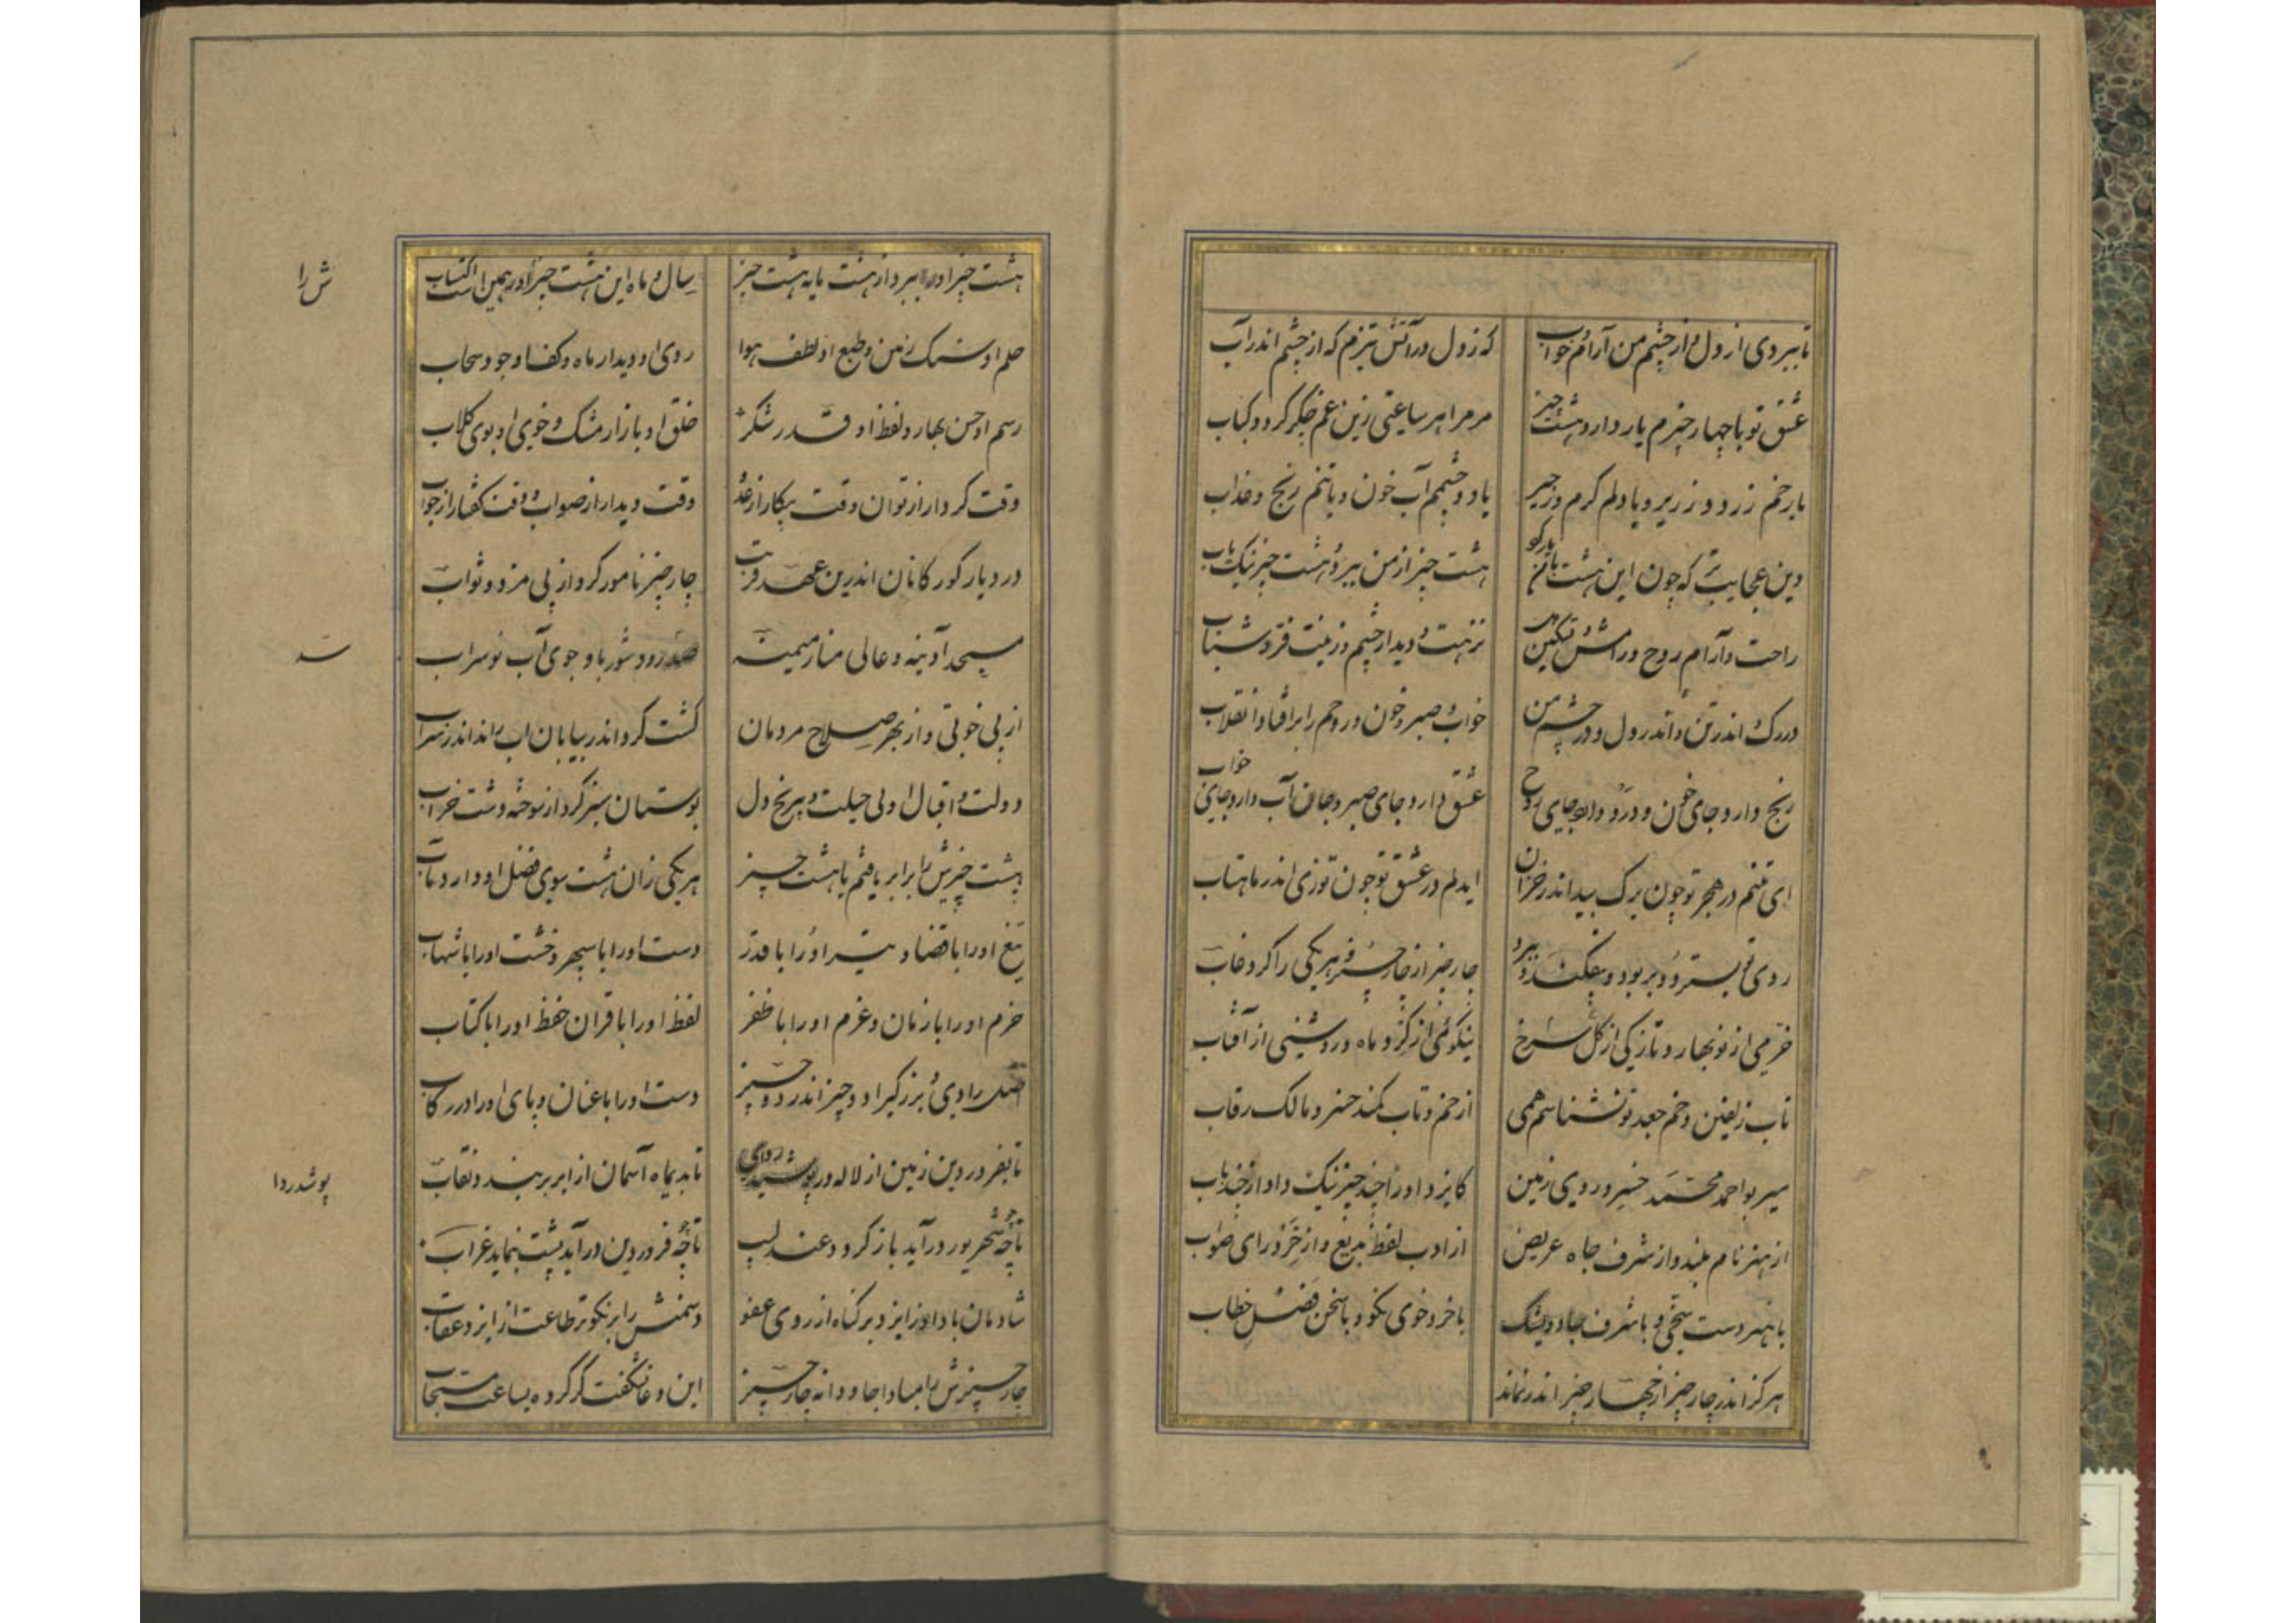 تا ببردی از دل و از چشم من آرام و خواب
که ز دل در آتش تیزم که از چشم اندر آب
عشق تو با چهار چیزم یار دارد هشت چیز
مر مرا هر ساعتی زین غم جگر گردد کباب
با رخم زرد و زریر و با دلم گرم و زحیر
با دو چشمم آب خون و با تنم رنج و عذاب
وین عجایبتر که چون این هشت با من یار کرد
هشت چیز از من ببرد و هشت چیز نیک یاب
راحت و آرام روح و رامش و تسکین دل
نزهت و دیدار چشم و زینت و فر و شباب
در رگ و اندر تن و اندر دل و در چشم من
خواب و صبر و خون و روحم را برافتاد انقلاب
رنج دارد جای خون و درد دارد جای روح
عشق دارد جای صبر و جان آب دارد جای خواب
ای تنم در هجر تو چون برگ بید اندر خزان
ای دلم در عشق تو چون توزی اندر ماهتاب
روی تو بسترد و بربود و بیفکند و ببرد
چار چیز از چار چیز و هر یکی را کرد غاب
خرمی از نوبهار و تازگی از گل سرخ
نیکوئی از گرد ماه و روشنی از آفتاب
تاب زلفین و خم جعد تو نشناسم همی
از خم و تاب کمند خسرو مالک رقاب
میر بو احمد محمد خسرو روی زمین
کایزد او را چند چیز نیک داد از چند باب
از هنر نام بلند و از شرف جاه عریض
از ادب لفظ بدیع و از خرد رای صواب
با هنر دست سخی و با شرف جاه و
با خرد خوی نکو و با سخن فضل خطاب
هرگز اندر چار چیز از چهار چیز اندر نماند
وقت دیدار از صواب و وقت گفتار از جواب
هشت چیز او را ببرد از هشت مایه هشت چیز
سال و ماه این هشت چیز او را همین است اکتساب
ش را
حلم او سنگ زمین و طبع او لطف هوا
روی او دیدار ماه و کف او جود سحاب
رسم او حسن بهار و لفظ او قدر شکر
خلق او بازار مشک و خوی او بوی گلاب
وقت کردار از توان و وقت پیکار از عدو
در دیار گورکانان اندرین عهد قریب
چار چیز نامور کرد از پی مزد و ثواب
مسجد آدینه و عالی منار میمنه
رود شور با و جوی آب نوسراب
از پی خوبی و از بهر صلاح مردمان
کشت کرد اندر بیابان آب راند اندر سراب
دولت و اقبال او بی حیلت و بی رنج دل
بوستان سبز کرد از سوخته دشت خراب
هشت چیزش را برابر یافتم با هشت چیز
هر یکی زان هشت سوی فضل او دارد مآب
تیغ او را با قضا و تیر او را با قدر
دست او را با سپهر و خشت او را با شهاب
حزم او را با زمان و عزم او را با ظفر
لفظ او را با قران حفظ او را با کتاب
رادی و برزگیر او دو چیز اندر دو چیز
دست او را با عنان و پای او را در رکاب
تا بفروردین زمین از لاله در پوشد ردای
تا بدیماه آسمان از ابر بربندد نقاب
پوشد ردا
تا چو شهریور درآید باز گردد عندلیب
تا چو فروردین درآید پشت بنماید غراب
شادمان باد او ز ایزد بر گناه از روی عفو
دشمنش را بر نکوتر طاعت از ایزد عقاب
چار چیزش را مبادا جاودانه چار چیز
این دعا نگفت گر کرده بساعت مستجاب